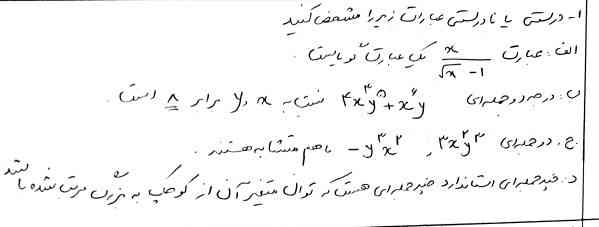 ۱- درستی یا نادرستی عبارات زیر را مشخص کنید
الف: عبارت x/(√x - 1) یک عبارت گویاست.
ب: درجه دو جمله‌ای 4x³y⁵+x⁶y نسبت به x و y برابر ۸ است.
ج. دو جمله‌ای ۳x²y³ , -y³x² با هم متشابه هستند.
د. چند جمله‌ای استاندارد چند جمله‌ای هست که توان متغیر آن از کوچک به بزرگ مرتب شده باشد